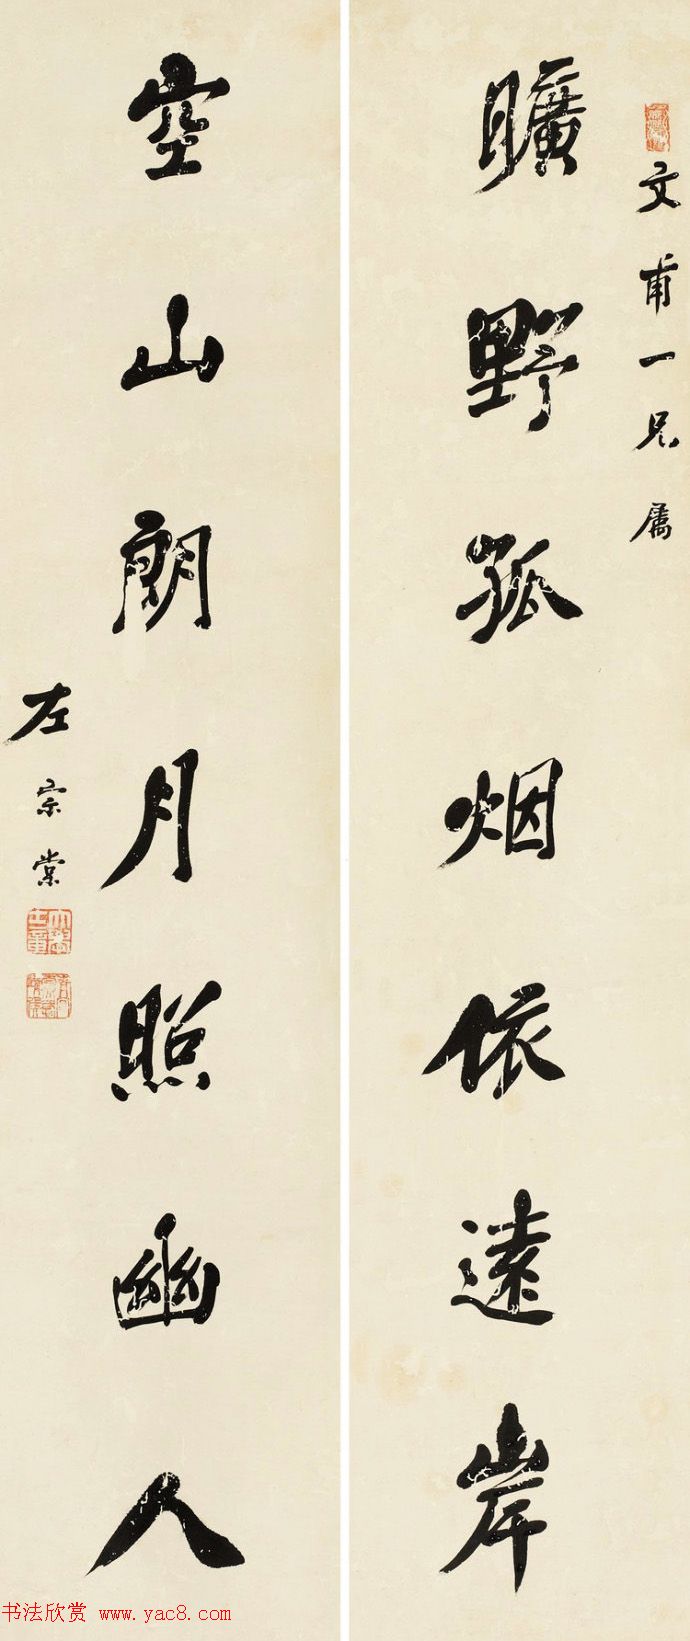 文甫一兄属
曠野孤烟依遠岸
空山朗月照幽人
左宗棠
书法欣赏 www.yac8.com